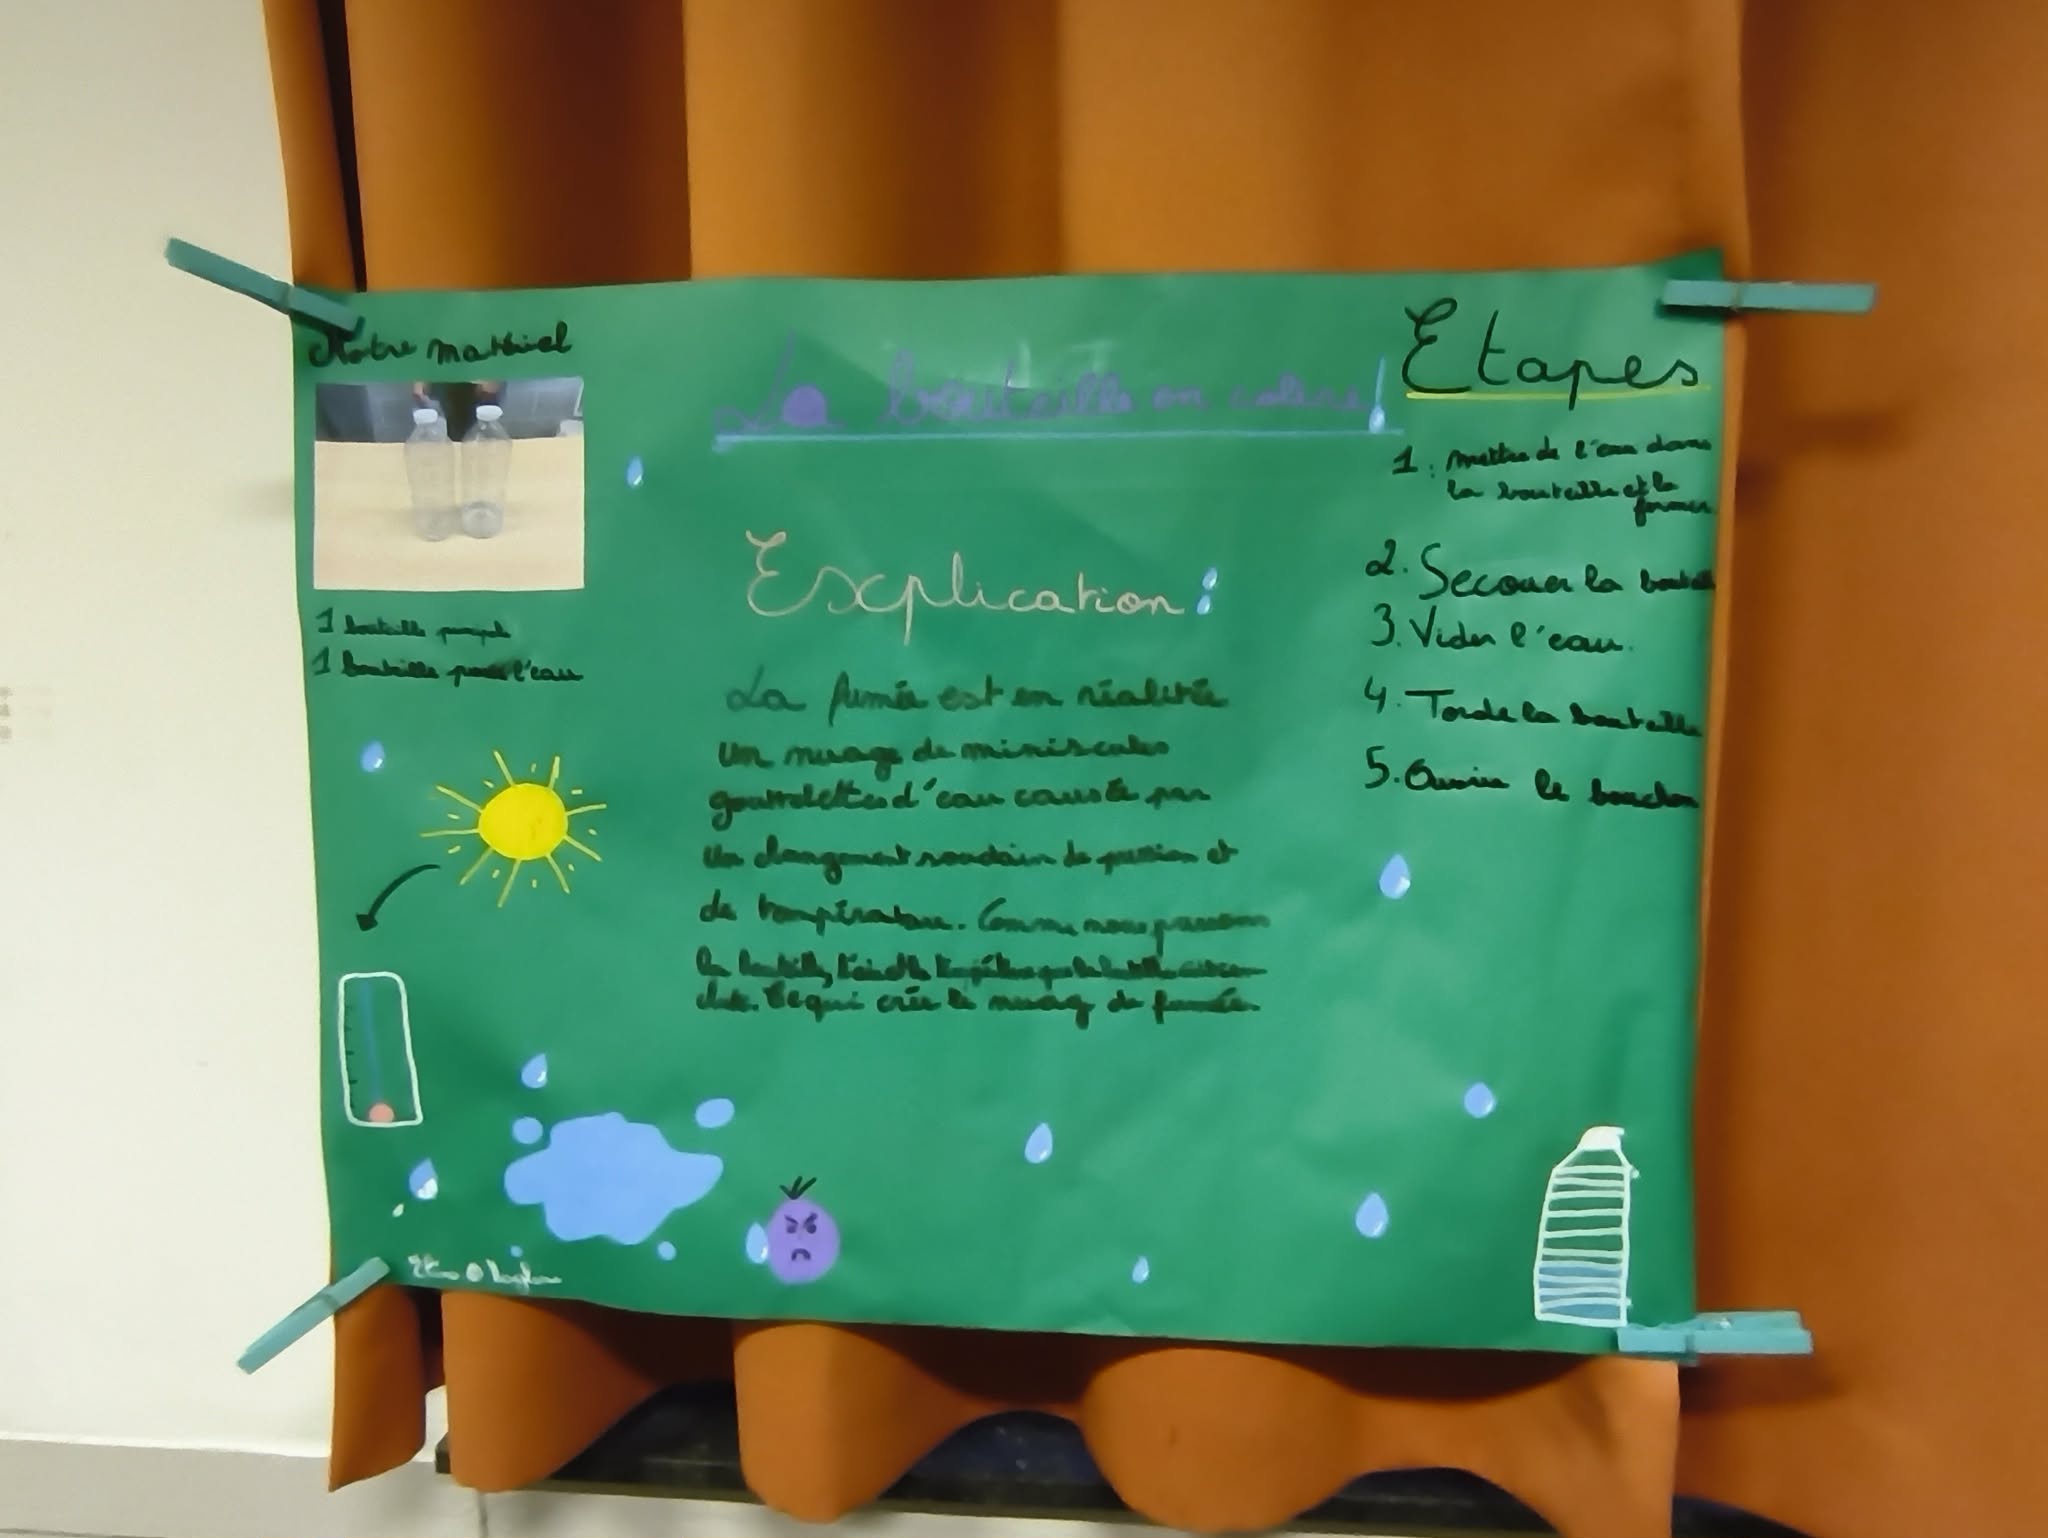 Notre matériel
1 bouteille
1 bouteille pour l'eau
La bouteille en colère!
Explication:
La fumée est en réalitée
un nuage de miniscules
gouttelettes d'eau causée par
un changement soudain de pression et
de température. Comme nous pressons
la bouteille,
Ce qui crée le nuage de fumée.
Etapes
1. Mettre de l'eau dans
la bouteille et la
fermer.
2. Secouer la bouteille
3. Vider l'eau.
4. Torde la bouteille
5. Ouvrir le bouchon